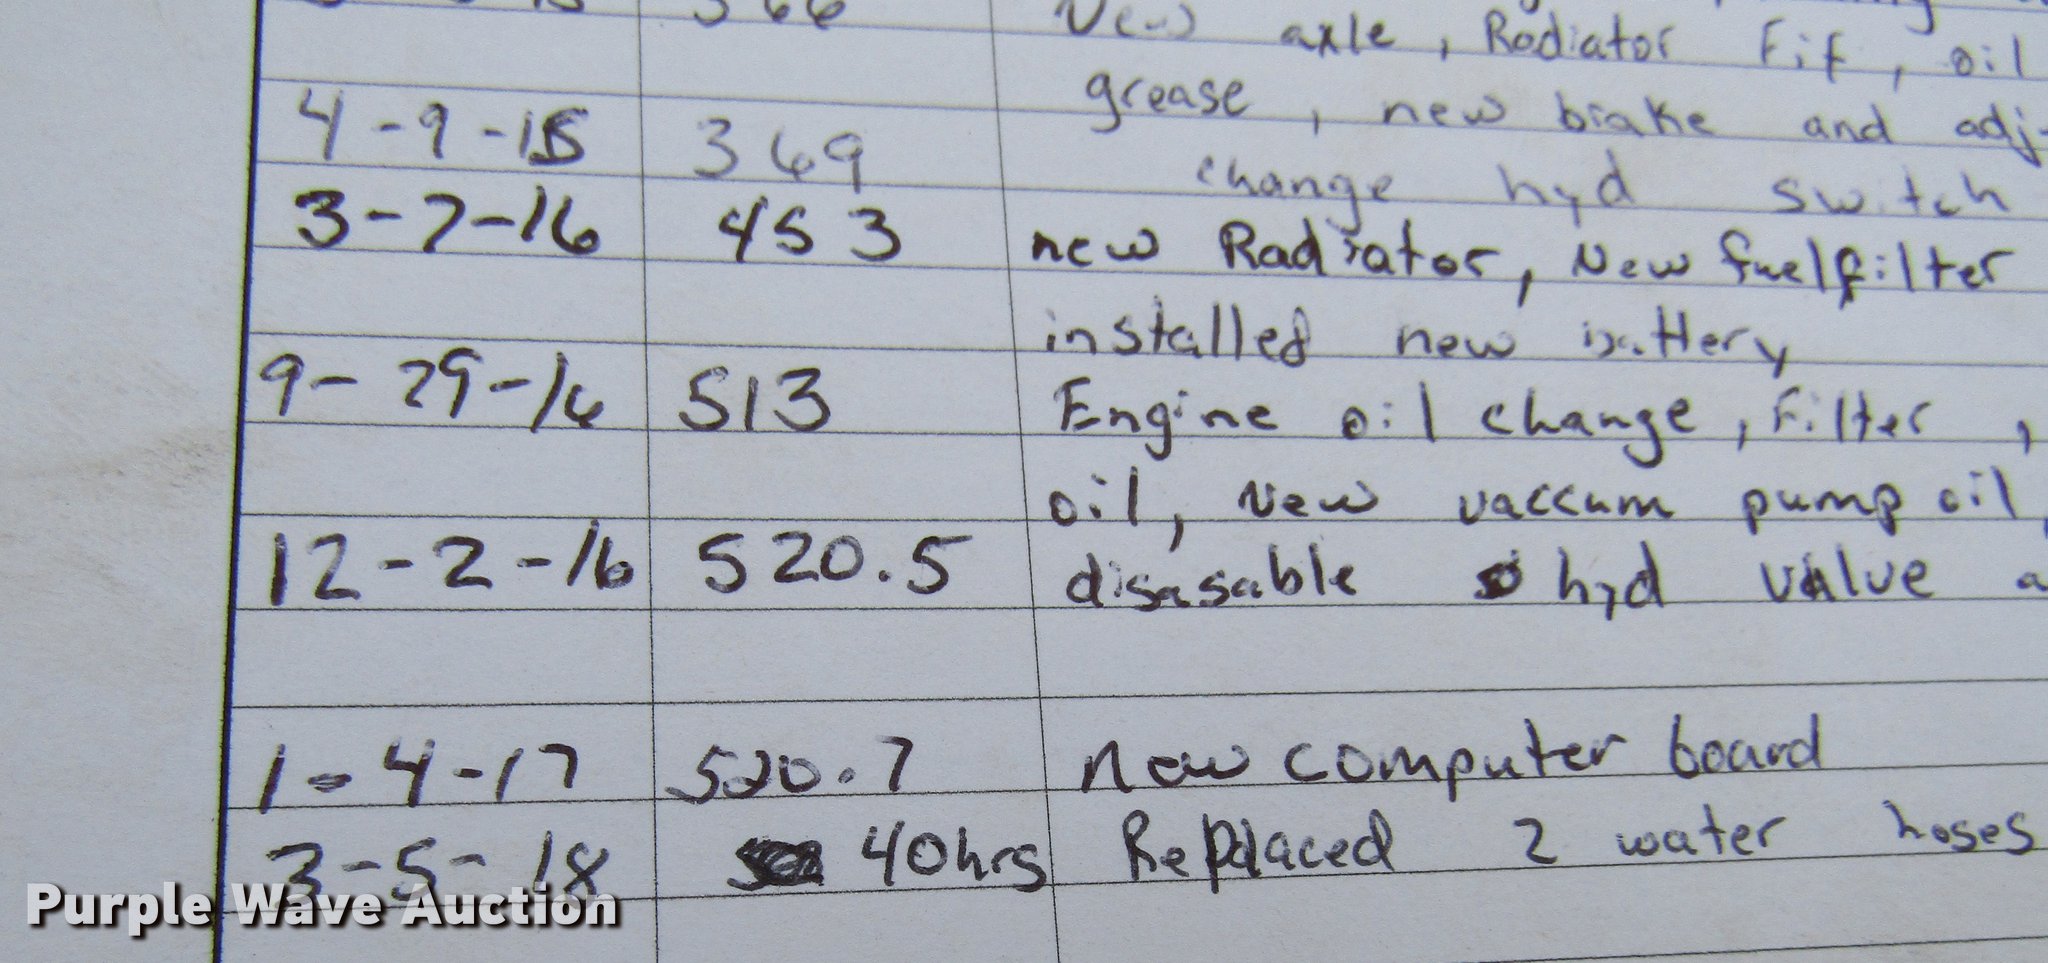 366 New axle, Radiator Fif, oil
grease, new brake and adj-
4-9-15 369 change hyd switch
3-7-16 453 new Radiator, New fuelfilter
installed new battery
9-29-16 513 Engine oil change, Filter,
oil, New vaccum pump oil,
12-2-16 520.5 disasable hyd value a
1-4-17 520.7 New computer board
3-5-18 40hrs Replaced 2 water hoses
Purple Wave Auction